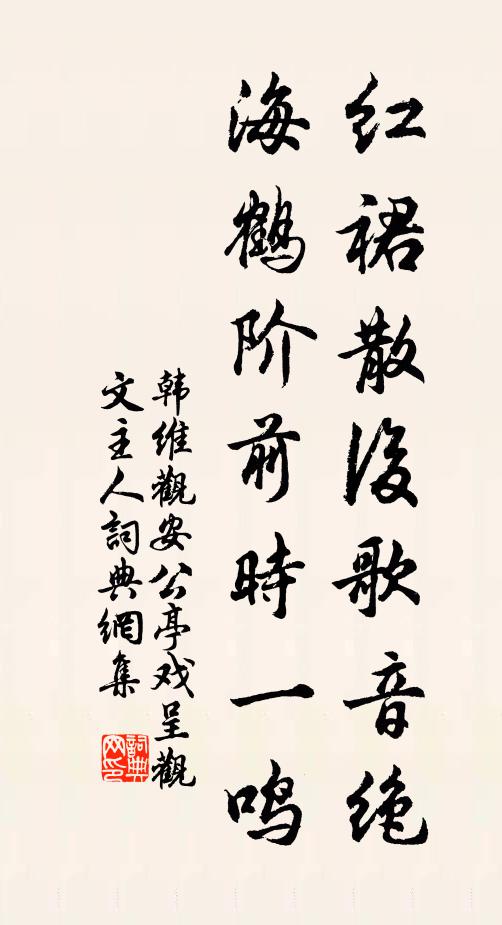 红裙散後歌音绝
海鹤阶前時一鸣
韩维觀安公亭戏呈觀
文主人詞典網集
詞典网印